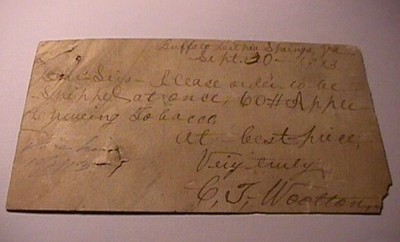 Buffalo Lithia Springs, Va
Sept. 20 -
Sirs - Please order to be
shipped at once 60# Apple
Chewing Tobacco
at best price,
Very truly,
C. T. Wootton